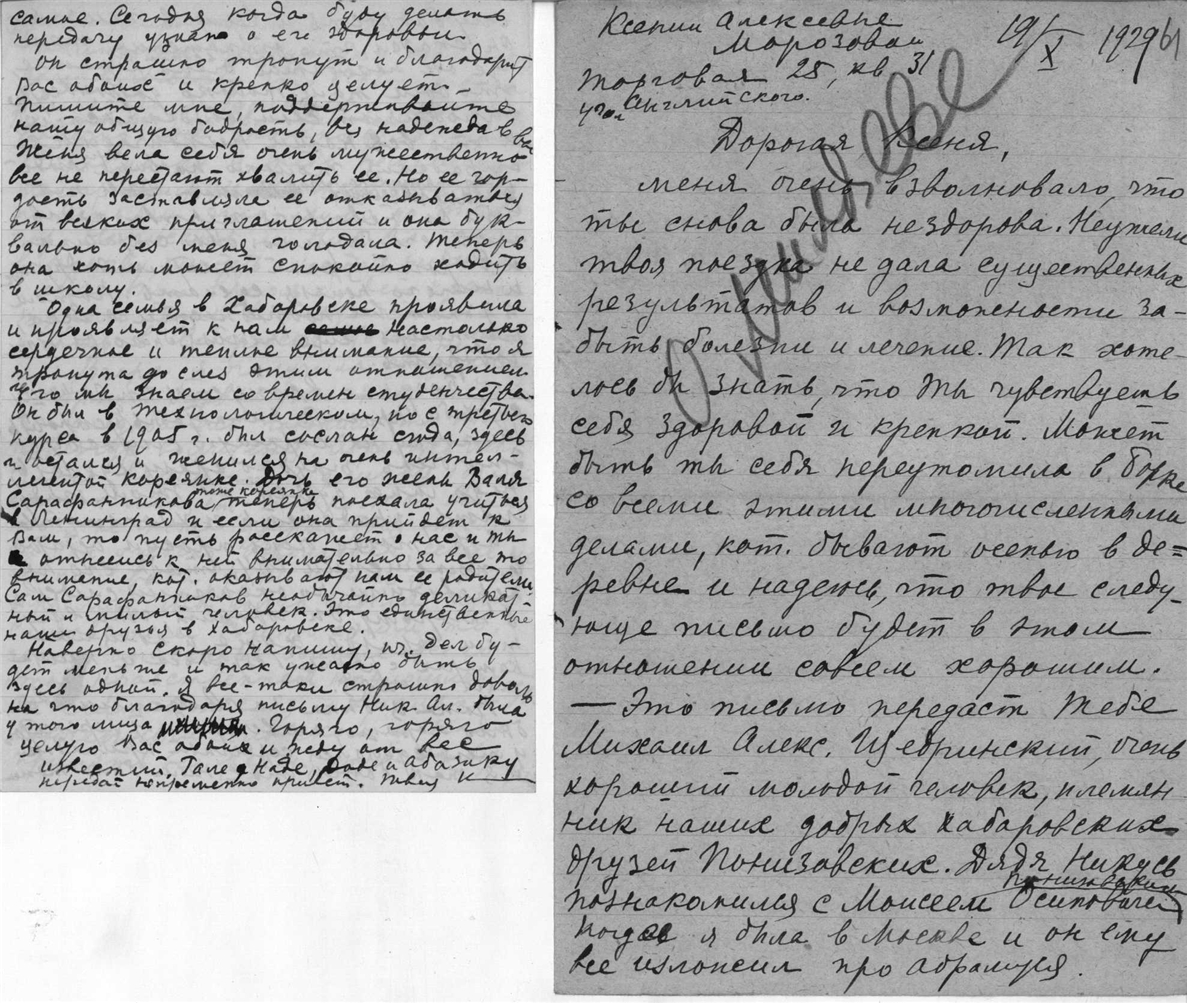 самое. Сегодня когда буду делать
передачу узнаю о его здоровьи.
Он страшно тронут и благодарит
Вас обоих и крепко целует.
Пишите мне, поддерживайте
нашу общую бодрость, вся надежда в вас
Женя вела себя очень мужественно
все не перестают хвалить ее. Но ее гор-
дость заставляла ее отказываться
от всяких приглашений и она бук-
вально без меня голодала. Теперь
она хоть может спокойно ходить
в школу.
Одна семья в Хабаровске проявила
и проявляет к нам настолько
сердечное и теплое внимание, что я
тронута до слез этим отношением
Его мы знаем со времен студенчества.
Он был в Технологическом, но с третьего
курса в 1905 г. был сослан сюда, здесь
и остался и женился на очень интел-
легентой кореянке. Дочь его жены Валя
Сарафанникова тоже кореянка теперь поехала учиться
в Ленинград и если она прийдет к
Вам, то пусть расскажет о нас и ты
отнесись к ней внимательно за все то
внимание, кот. оказывают нам ее родители.
Сам Сарафанников необычайно деликат
ный и милый человек. Это единственные
наши друзья в Хабаровске.
Наверно скоро напишу, т.к. дел бу-
дет меньше и так ужасно быть
здесь одной. Я все-таки страшно доволь
на что благодаря письму Ник Ал. была
у того лица. Горячо, горячо
целую Вас обоих и жду от Вас
известий. Гале Наде, Даде и Абазику
передай непременно привет. Твоя К
Ксении Алексевне
Морозовой
19/X 1929
61
Торговая 25, кв 31
угол Английского.
Дорогая Ксеня,
меня очень взволновало, что
ты снова была нездорова. Неужели
твоя поездка не дала существенных
результатов и возможности за-
быть болезни и лечение. Так хоте-
лось бы знать, что ты чувствуешь
себя здоровой и крепкой. Может
быть ты себя переутомила в Борке
со всеми этими многочисленными
делами, кот. бывают осенью в де=
ревне и надеюсь, что твое следу-
ющее письмо будет в этом
отношении совсем хорошим.
— Это письмо передаст тебе
Михаил Алекс. Щебринский, очень
хороший молодой человек, племян
ник наших добрых хабаровских
друзей Понизовских. Дядя Никусь
познакомился с Моисеем Осиповичем Понизовским
когда я была в Москве и он ему
все изложил про Абрамуся.